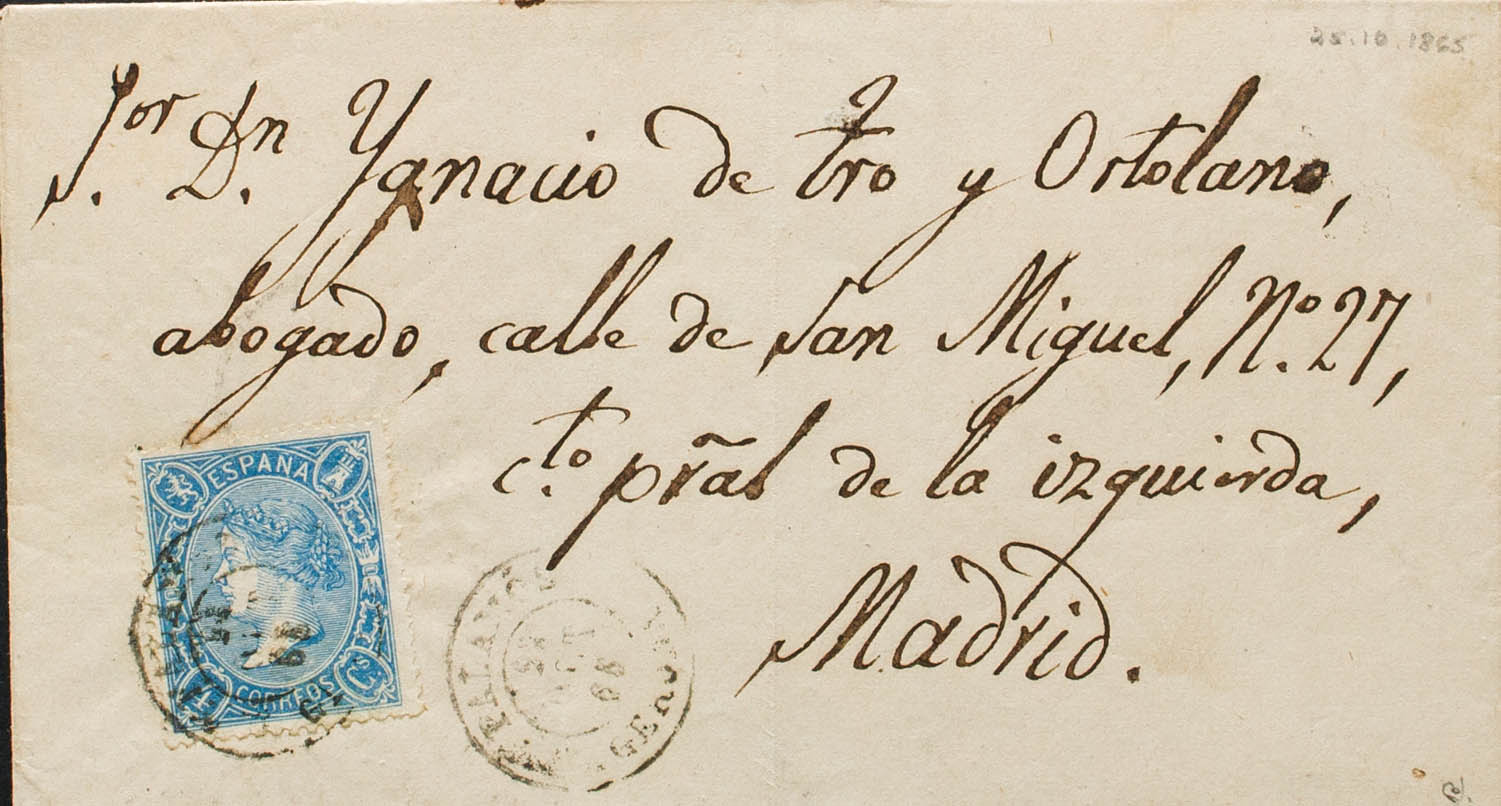 25.10.1865
S.or D.n Ygnacio de Tro y Ortolano,
abogado, calle de San Miguel, N.o 27,
c.to pr̃al de la izquierda,
Madrid.
ESPAÑA
4 CORREOS Cs
PALAMOS
GERONA